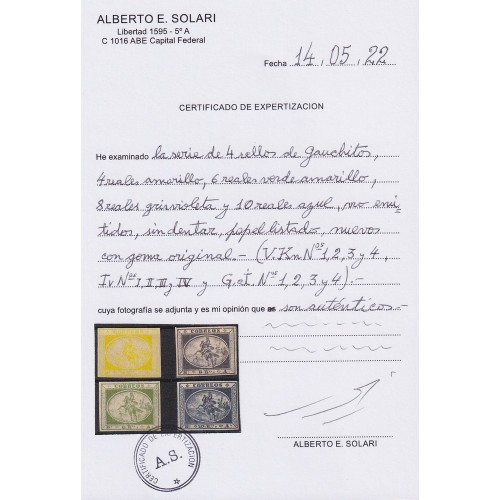 ALBERTO E. SOLARI
Libertad 1595 - 5º A
C 1016 ABE Capital Federal
Fecha 14, 05, 22
CERTIFICADO DE EXPERTIZACION
He examinado la serie de 4 sellos de Gauchitos,
4 reales amarillo, 6 reales verde amarillo,
8 reales grisvioleta y 10 reales azul, no emi-
tidos, sin dentar, papel listado, nuevos
con goma original.- (V.K n Nos 1, 2, 3 y 4,
Iv Nos I, II, III y IV y G. et I. Nos 1, 2, 3 y 4).-
cuya fotografía se adjunta y es mi opinión que es son auténticos.-
CORREOS
CORREOS
CORREOS
CERTIFICADO DE EXPERTIZACION
A.S.
ALBERTO E. SOLARI